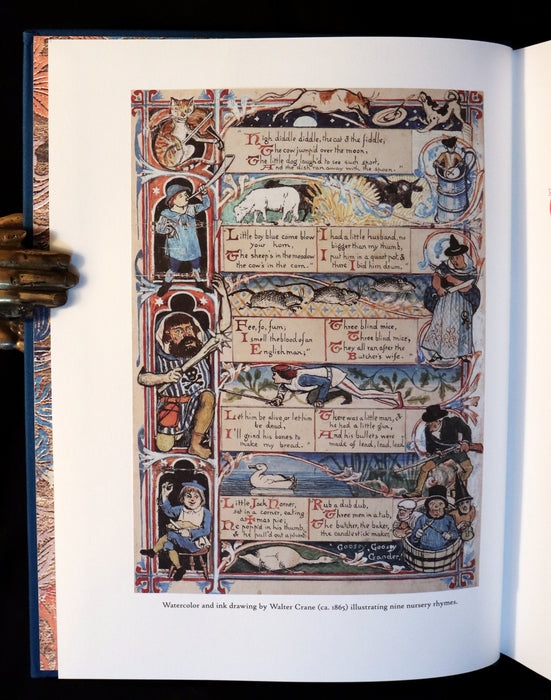 High diddle diddle, the cat & the fiddle,
The cow jump'd over the moon,
The little dog laugh'd to see such sport,
And the dish ran away with the spoon."
Little boy blue come blow
your horn,
The sheep's in the meadow
the cow's in the corn.
I had a little husband, no
bigger than my thumb,
I put him in a quart pot, &
there I bid him drum.
Fee, fo, fum;
I smell the blood of an
Englishman;"
Three blind mice,
Three blind mice,
They all ran after the
Butcher's wife.
Let him be alive, or let him
be dead,
I'll grind his bones to
make my bread.
There was a little man, &
he had a little gun,
And his bullets were
made of lead, lead, lead
Little Jack Horner,
sat in a corner, eating
a Xmas pie;
He popp'd in his thumb,
& he pull'd out a plumb
Rub a dub dub,
Three men in a tub,
The butcher, the baker,
the candlestick maker,
Goosey, Goosey
Gander.
Watercolor and ink drawing by Walter Crane (ca. 1865) illustrating nine nursery rhymes.